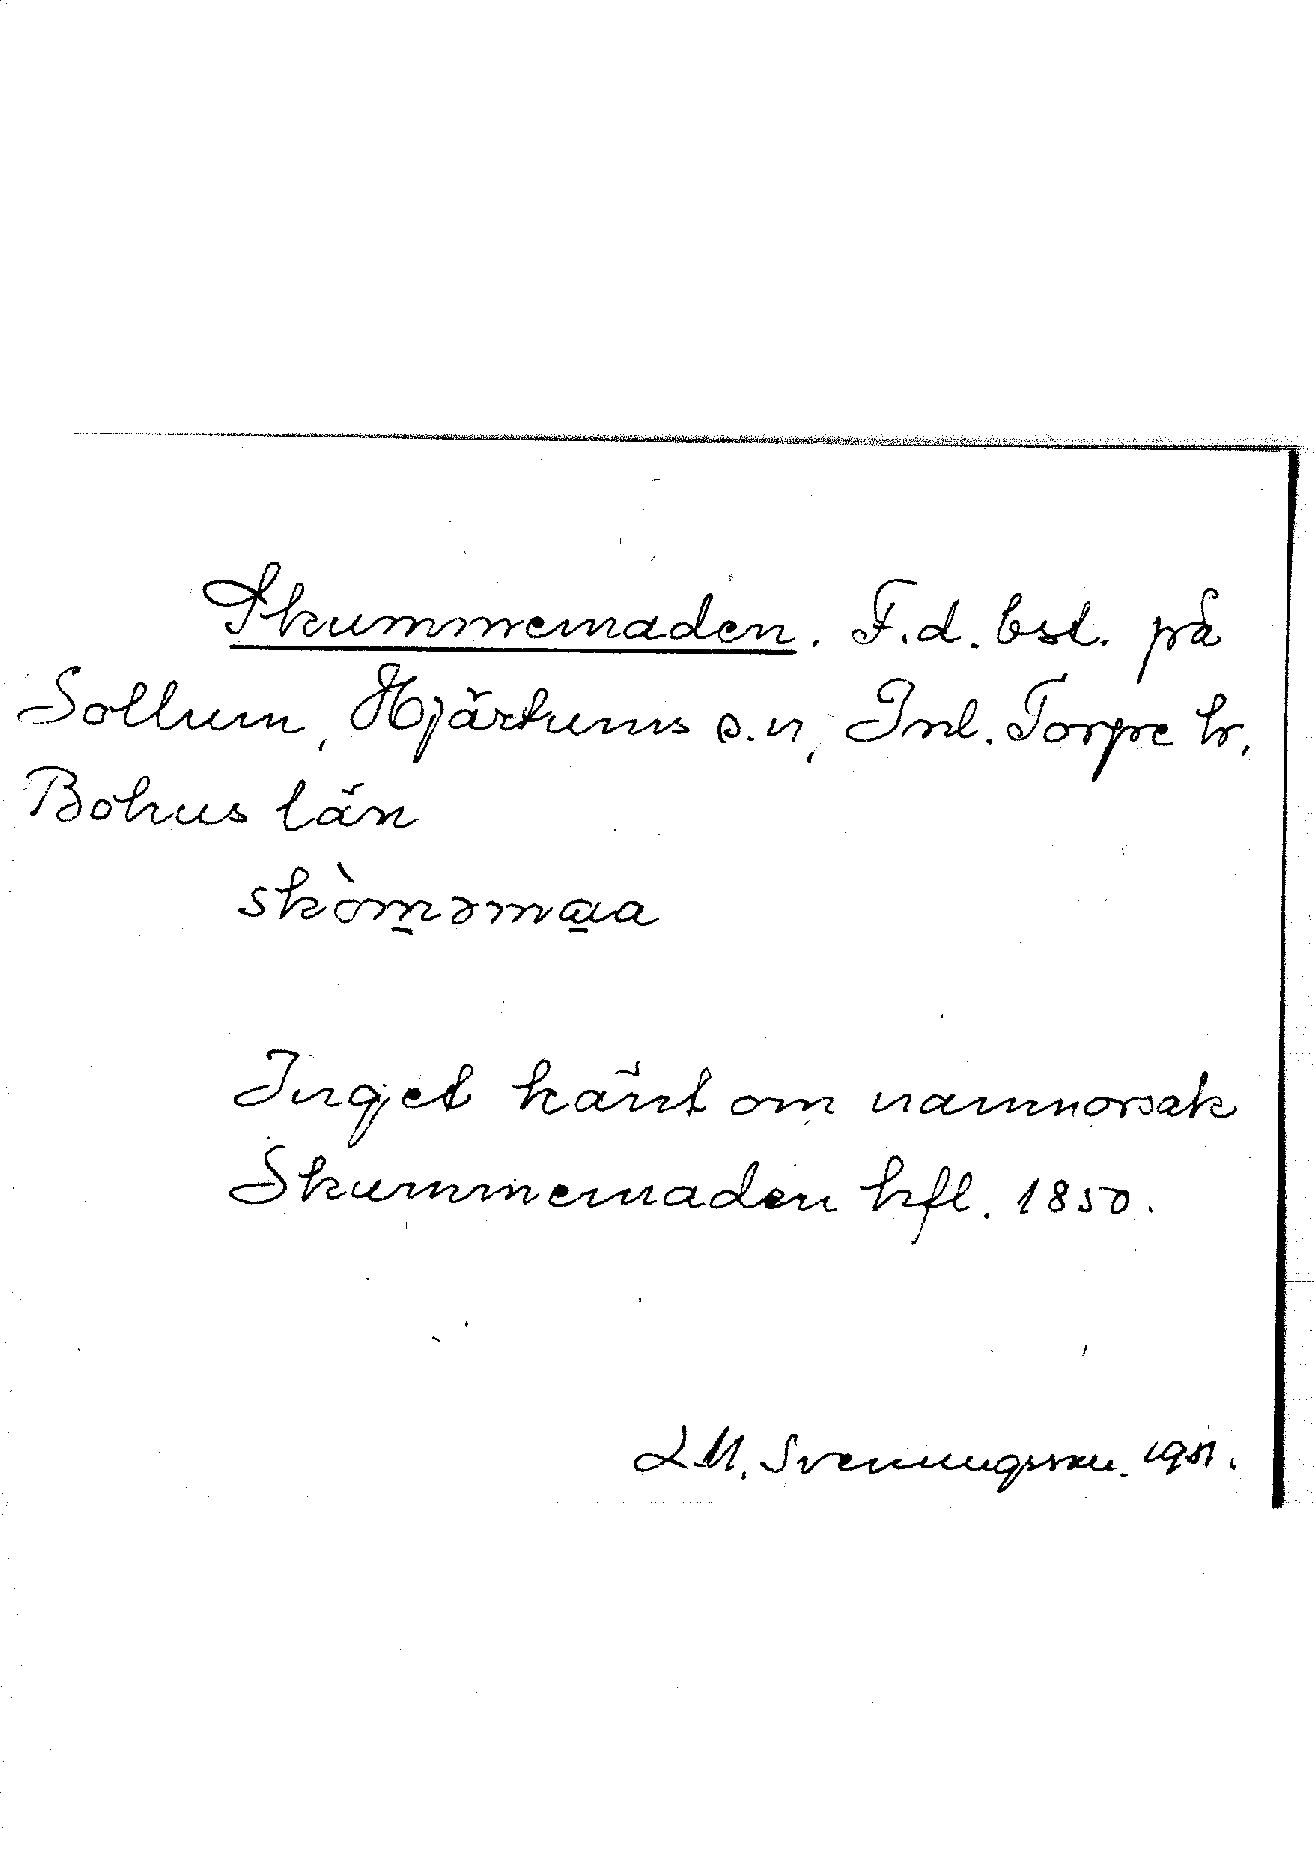 Skummemaden. F.d. bst. på
Sollum, Hjärtums s.n, Inl. Torpe hr.
Bohus län
skòm̲əma̲a
Inget känt om namnorsak
Skummemaden hfl. 1850.
L.M. Svenungsson. 1951.